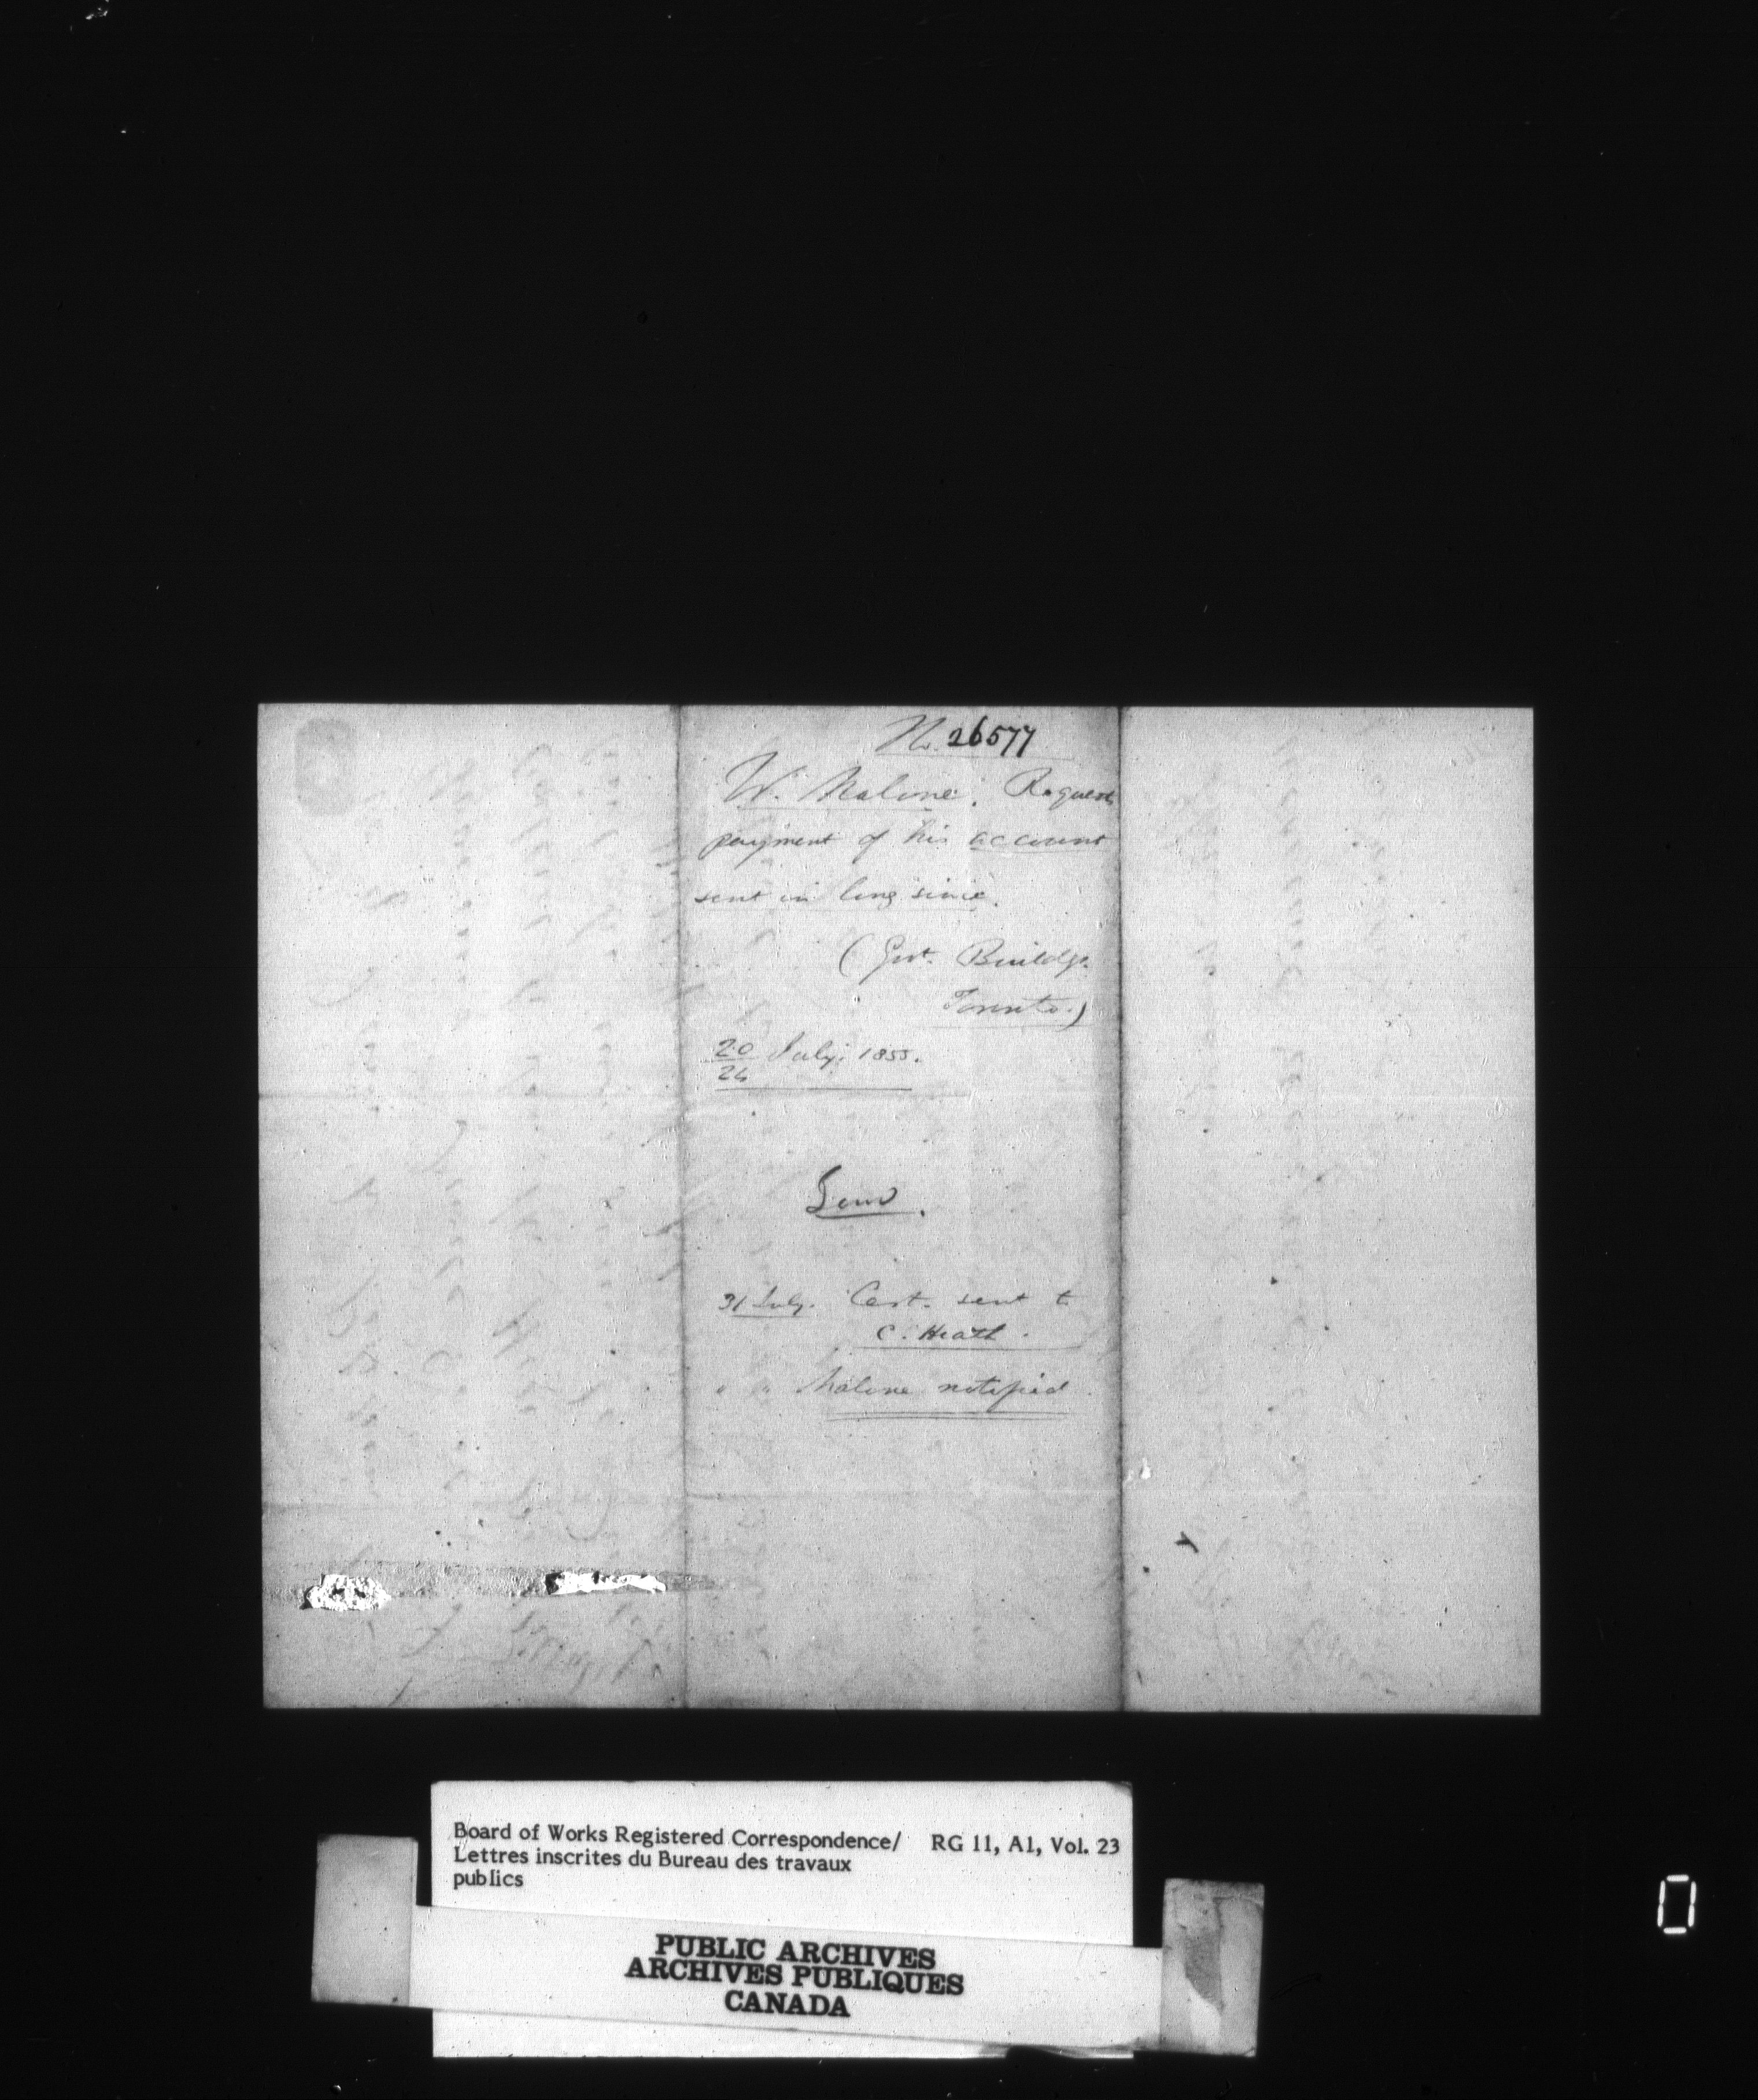 No. 26577
W. Malone. Requests
payment of his account
sent in long since.
(Govt. Buildgs.
Toronto.)
20 July, 1855.
24
31 July. Cert. sent to
C. Heath.
" " Malone notified.
Board of Works Registered Correspondence/ RG 11, A1, Vol. 23
Lettres inscrites du Bureau des travaux
publics
PUBLIC ARCHIVES
ARCHIVES PUBLIQUES
CANADA
0